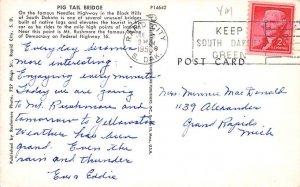 PIG TAIL BRIDGE
On the famous Needles Highway in the Black Hills
of South Dakota is one of several unusual bridges
built of native logs and elevates the tourist in
near this point is Mt. Rushmore the famous
of Democracy on Federal Highway
P14642
Everyday becomes
more interesting.
Enjoying every minute
Today we are going
to Mt. Rushmore and
tomorrow to Yellowstone
Weather has been
grand. Even the
rain and thunder
Ever Eddie
RAPID CITY
S. DAK.
KEEP
SOUTH DAKOTA
GREEN
2¢
POST CARD
Mrs. Minnie MacDonald
1139 Alexander
Grand Rapids
Mich
Published by Rushmore Photo, 727 Main St., Rapid City, S. D.